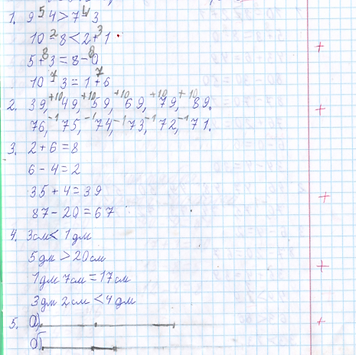 1. 9 - 4 > 7 - 3
10 - 8 < 2 + 1
5 + 3 = 8 - 0
10 - 3 = 1 + 6
2. 39, 49, 59, 69, 79, 89.
76, 75, 74, 73, 72, 71.
3. 2 + 6 = 8
6 - 4 = 2
35 + 4 = 39
87 - 20 = 67
4. 3см < 1 дм
5 дм > 20 см
1 дм 7см = 17см
3дм 2см < 4 дм
5. а)
б)